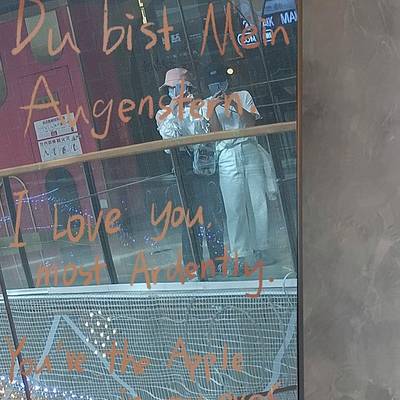 Du bist Mein
Augenstern.
I Love you,
most Ardently.
You're the Apple